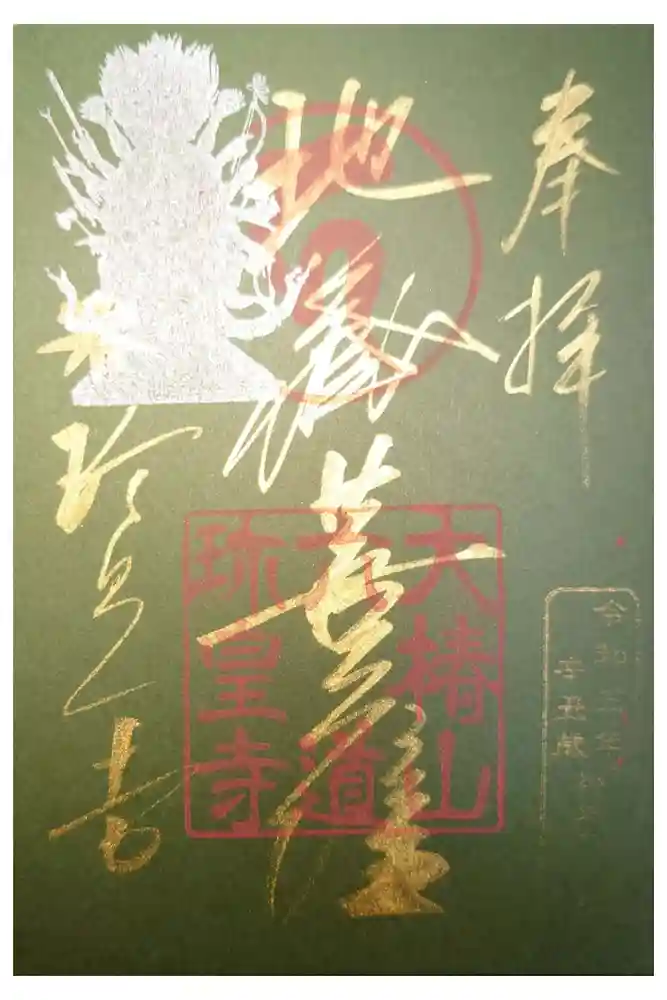 奉拝
地蔵菩薩
珍皇寺
大椿山
六道
珍皇寺
令和三年
辛丑歳